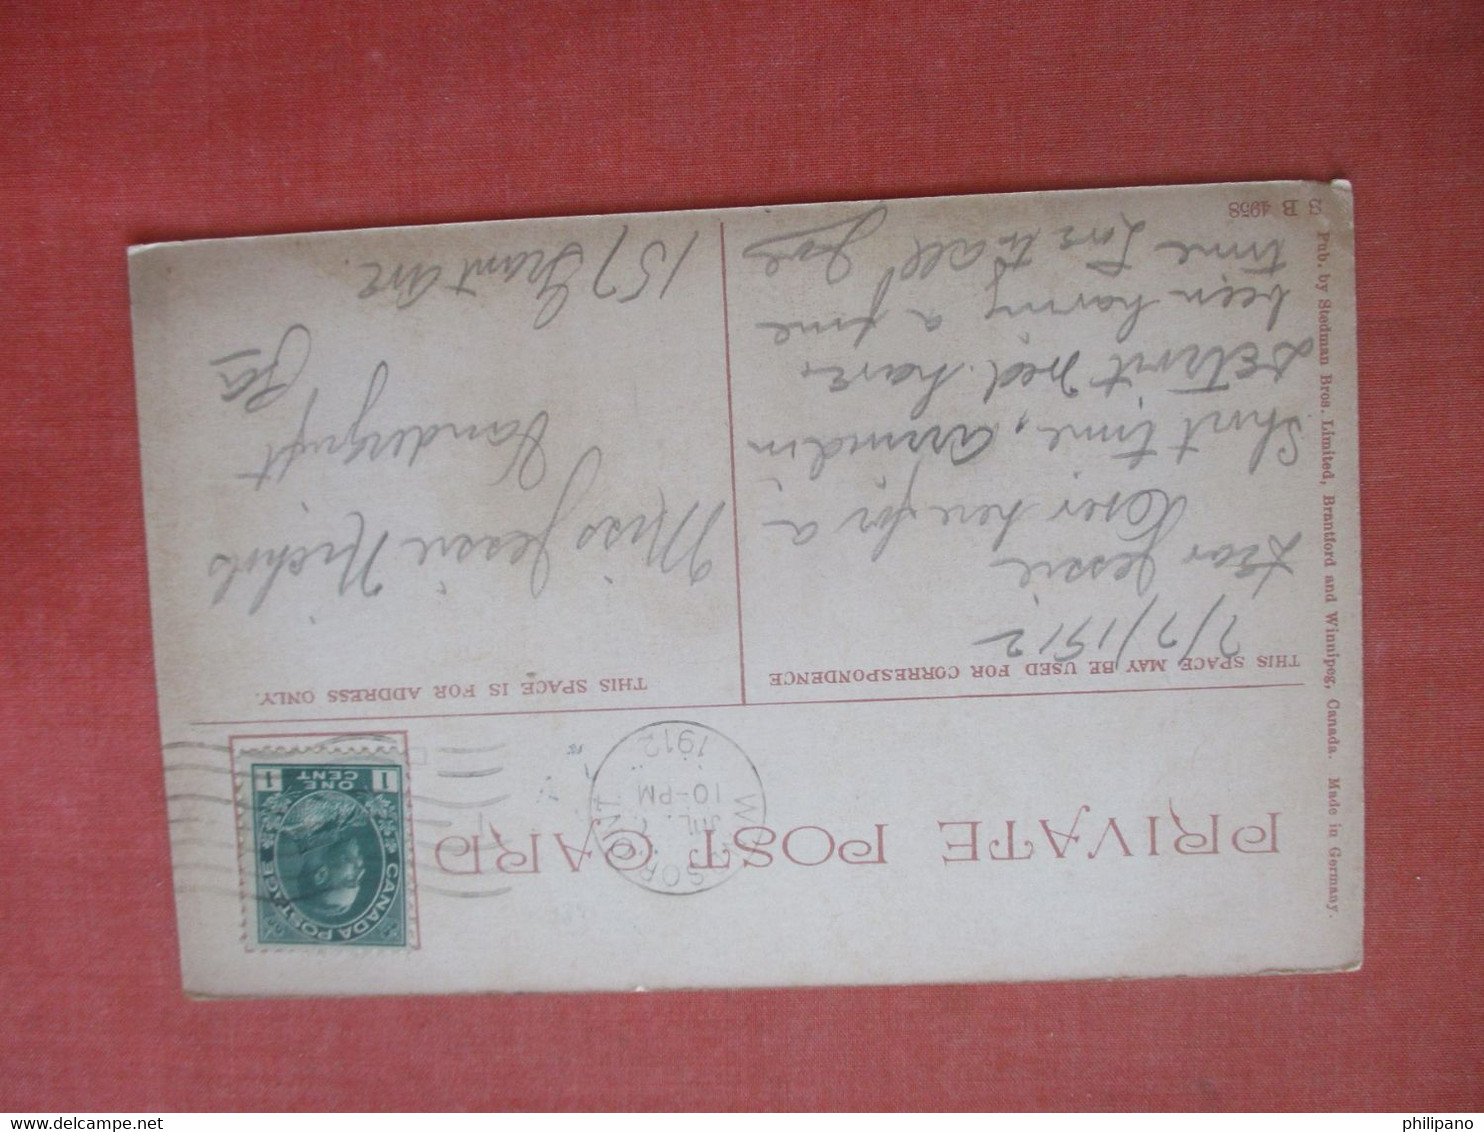 PRIVATE POST CARD
CANADA POSTAGE
1 ONE CENT 1
WINDSOR
ONT
JUL
10-PM
1912
THIS SPACE MAY BE USED FOR CORRESPONDENCE
THIS SPACE IS FOR ADDRESS ONLY.
7/7/1912
Dear Jessie
Over here for a
Short time, arrived in
Detroit Wed. have
been having a fine
time Love to all Joe
Miss Jessie Nichols
Vandergrift
Pa
157 Grant Ave.
S B 4958
Pub. by Stedman Bros. Limited, Brantford and Winnipeg, Canada. Made in Germany.
philipano